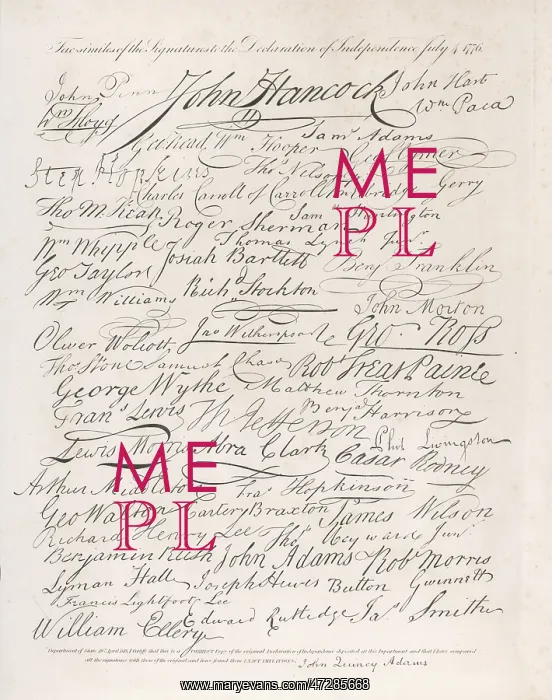 Facsimiles of the Signatures to the Declaration of Independence July 4 1776.
John Penn John Hancock John Hart
Wm Floyd Wm Paca
Geo Read Wm Hooper Saml Adams
Step Hopkins Thos Nelson Geo Clymer
Charles Carroll of Carrollton Elbridge Gerry
Tho M:Kean Roger Sherman Sam Huntington
Wm Whipple Thomas Lynch Junr
Geo Taylor Josiah Bartlett Benj Franklin
Wm Williams Richd Stockton John Morton
Oliver Wolcott Jno Witherspoon Geo. Ross
Thos Stone Samuel Chase Robt Treat Paine
George Wythe Matthew Thornton
Frans Lewis Th Jefferson Benj Harrison
Lewis Morris Abra Clark Phil. Livingston
Cæsar Rodney
Arthur Middleton Fras Hopkinson
Geo Walton Carter Braxton James Wilson
Richard Henry Lee Thos Heyward Junr
Benjamin Rush John Adams Robt Morris
Lyman Hall Joseph Hewes Button Gwinnett
Francis Lightfoot Lee
William Ellery Edward Rutledge Jas Smith
Department of State 19th April 1819, I Certify that this is a CORRECT Copy of the original Declaration of Independence deposited at this Department and that I have compared
all the signatures with those of the original, and have found them EXACT IMITATIONS. John Quincy Adams
ME
PL
ME
PL
www.maryevans.com/47285668